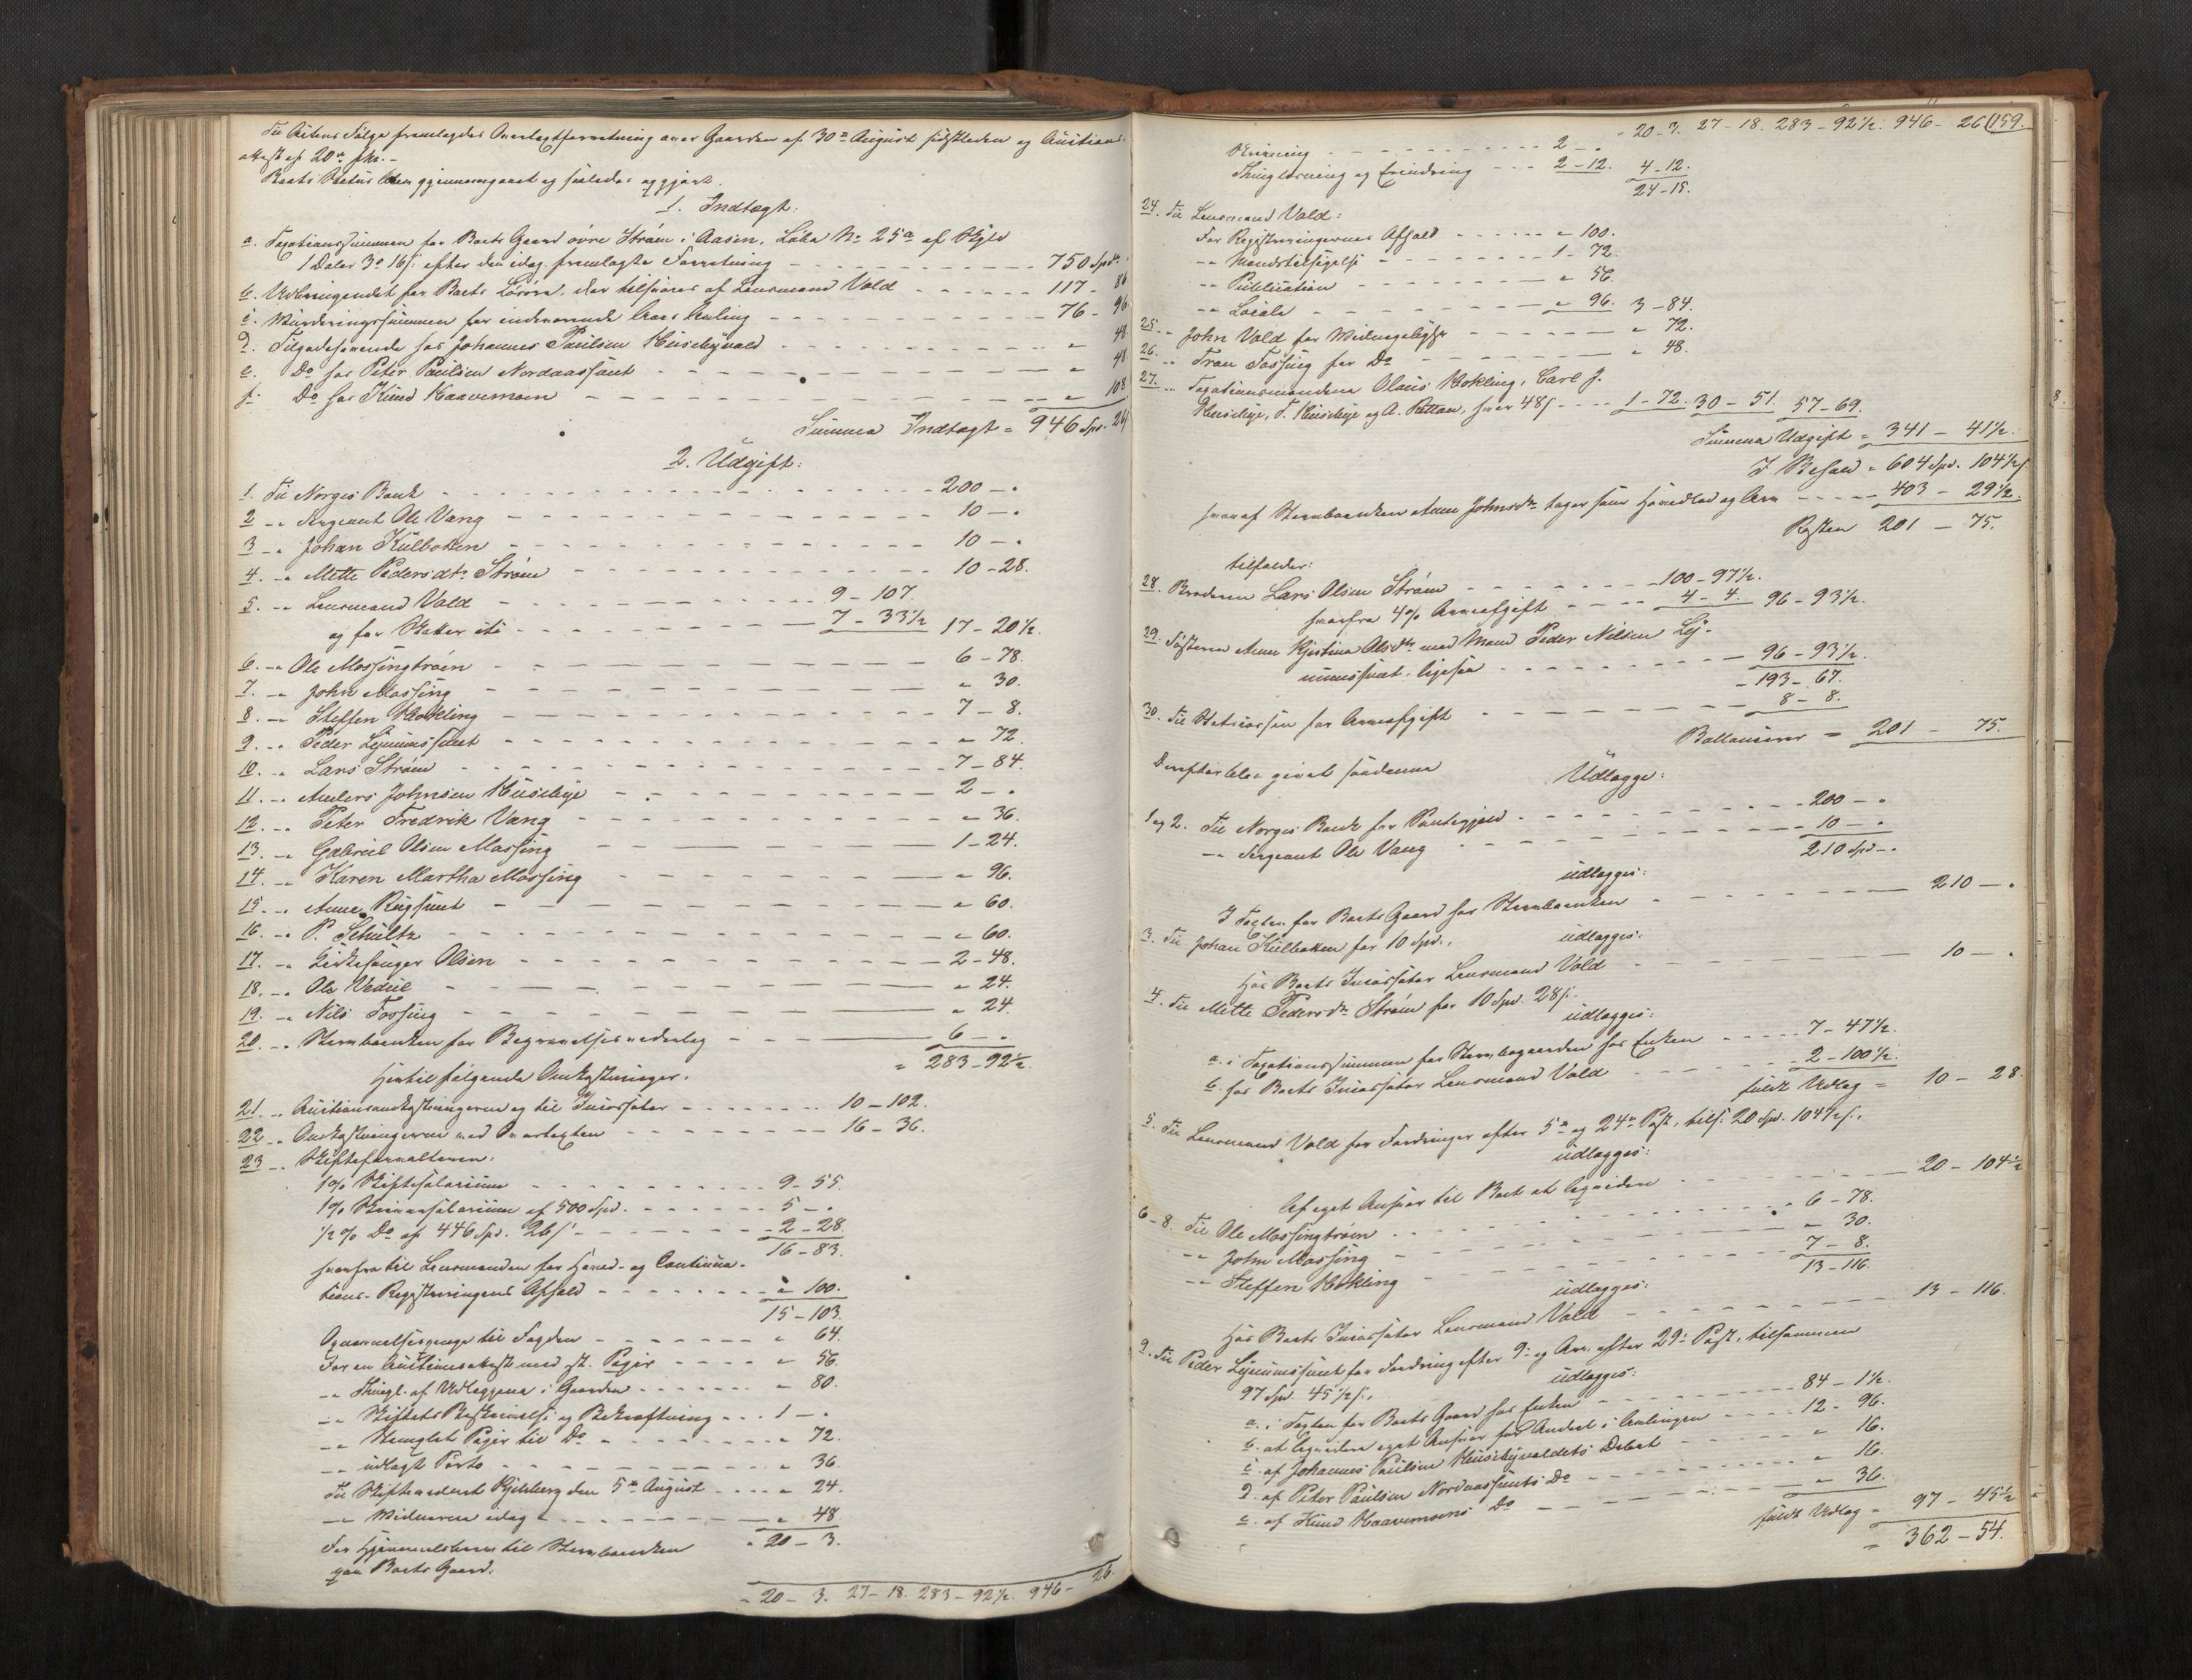 Til Actens Følge fremlagdes Overtagtforretning over Gaarden af 30te August sidstleden og Auctions-
attest af 20de ds. -
Boets Status blev gjennemgaaet og saaledes opgjort.
1. Indtægt:
a. Taxationssummen for Boets Gaard øvre Strøm i Aasen, Løbe No 25a af Skyld
1 Daler 3 o 16 s. efter den idag fremlagte Forretning - - - 750 Spd.
b. Udbringendet for Boets Løsøre, der tilsvares af Lensmand Vold - - - 117 - 86
c. Vurderingssummen for indeværende Aars Avling - - - 76 - 96
d. Tilgodehavende hos Johannes Paulsen Husebyvald - - - " 48
e. Do hos Peter Paulsen Nordaashaut - - - " 48
f. Do hos Knud Haavemoen - - - " 108
Summa Indtægt = 946 Spd. 26 s
2. Udgift:
1. Til Norges Bank - - - 200 - "
2 - " Sergeant Ole Vang - - - 10 - "
3 - " Johan Kulbotten - - - 10 - "
4. - " Mette Pedersdtr Strøm - - - 10 - 28.
5. - " Lensmand Vold - - - 9 - 107.
og for Skatter etc - - - 7 - 33 1/2 17 - 20 1/2.
6. - " Ole Mossingtrøen - - - 6 - 78.
7. - " John Mossing - - - " 30.
8. - " Steffen Hokling - - - 7 - 8.
9. - " Peder Lynumshaut - - - " 72.
10. - " Lars Strøm - - - 7 - 84.
11. - " Anders Johnsen Husebye - - - 2 - "
12. - " Peter Fredrik Vang - - - " 36.
13. - " Gabriel Olsen Mossing - - - 1 - 24.
14. - " Karen Martha Mossing - - - " 96.
15. - " Anne Rughaut - - - " 60.
16. - " P. Schultz - - - " 60.
17. - " Kirkesanger Olsen - - - 2 - 48.
18. - " Ole Vedul - - - " 24.
19. - " Nils Fossing - - - " 24
20. - " Stervboenken for Begravelsesvederlag - - - 6 - "
= 283 - 92 1/2.
Hertil følgende Omkostninger.
21. - " Auctionsomkostningerne og til Incassator - - - 10 - 102.
22 - " Omkostningerne ved Overtagten - - - 16 - 36.
23 - " Skifteforvalteren:
1 % Skiftesalarium - - - 9 - 55.
1 % Skriversalarium af 500 Spd. - - - 5 - "
1/2 % Do af 446 Spd. 26 s - - - 2 - 28
16 - 83.
hvorfra til Lensmanden for Hoved- og Continua-
tions-Registreringens Afhold - - - " 100.
15 - 103.
Opnævnelsespenge til Fogden - - - " 64.
For en Auctionsattest med st. Papir - - - " 56.
- " Thingl. af Udlæggene i Gaarden - - - " 80.
- " Skiftets Beskrivelse og Bekræftning - - - 1 - "
- " Stemplet Papir til Do - - - " 72.
- " udlagt Porto - - - " 36.
Til Skiftevidnet Kjelsberg den 5te August - - - " 24.
- " Vidnerne idag - - - " 48
" 20 - 3.
For Hjemmelsbrev til Stervboenken
paa Boets Gaard.
" 20 - 3. 27 - 18. 283 - 92 1/2. 946 - 26.
159.
" 20 - 3. 27 - 18. 283 - 92 1/2. 946 - 26
Skrivning - - - 2 - "
Thinglæsning og Erindring - - - 2 - 12. 4 - 12.
24 - 15.
24. Til Lensmand Vold:
For Registreringernes Afhold - - - " 100.
- " Mandstilsigelse - - - 1 - 72.
- " Publication - - - " 56.
- " Locale - - - " 96. 3 - 84.
25. - " John Vold for Vidneqelighed - - - " 72.
26. - " Tron Fossing for Do - - - " 48.
27. - " Taxationsmændene Olaus Hokling, Carl J.
Husebye, T. Husebye og A. Rattan, hver 48 s - - - 1 - 72. 30 - 51. 57 - 69.
Summa Udgift = 341 - 41 1/2.
I Behold = 604 Spd. 104 1/2 s
hvoraf Stervboenken Anne Johnsdtr tager som Hovedlod og Arv - - - 403 - 29 1/2.
Resten 201 - 75.
tilfalder:
28. Broderen Lars Olsen Strøm - - - 100 - 97 1/2.
hvorfra 4 % Arveafgift - - - 4 - 4. 96 - 93 1/2.
29. Søsteren Anne Kjerstina Olsdtr med Mand Peder Nilsen Ly-
numshaut, ligesaa - - - 96 - 93 1/2.
- 193 - 67.
30. Til Statscassen for Arveafgift - - - 8 - 8.
Ballancerer = 201 - 75.
Derefter blev givet saadanne
Udlægge:
1 og 2. Til Norges Bank for Pantegjæld - - - 200 - "
- " Sergeant Ole Vang - - - 10 - "
210 Spd - "
udlægges:
I Taxten for Boets Gaard hos Stervboenken - - - 210 - "
3. Til Johan Kulbotten for 10 Spd.,
udlægges:
Hos Boets Incassator Lensmand Vold - - - 10 - "
4. Til Mette Pedersdtr Strøm for 10 Spd. 28 s.
udlægges:
a. i Taxationssummen for Stervbogaarden hos Enken - - - 7 - 47 1/2.
b. hos Boets Incassator Lensmand Vold - - - 2 - 100 1/2.
fuldt Udlæg = 10 - 28.
5. Til Lensmand Vold for Fordringer efter 5te og 24de Post, tils. 20 Spd. 104 1/2 s.,
udlægges:
Af eget Ansvar til Boet at liqvidere - - - 20 - 104 1/2
6 - 8. Til Ole Mossingtrøen - - - 6 - 78.
- " John Mossing - - - " 30.
- " Steffen Hokling - - - 7 - 8.
13 - 116.
udlægges:
Hos Boets Incassator Lensmand Vold - - - 13 - 116.
9. Til Peder Lynumshaut for Fordring efter 9de og Arv efter 29de Post, tilsammen
97 Spd. 45 1/2 s.,
udlægges:
a. i Taxten for Boets Gaard hos Enken - - - 84 - 1 1/2.
b. at liqvidere eget Ansvar for Andeel i Avlingen - - - 12 - 96.
c. af Johannes Paulsen Husebyvaldets Debet - - - " 16.
d. af Peter Paulsen Nordaashauts Do - - - " 16.
e. af Knud Haavemoens Do - - - " 36.
fuldt Udlæg = 97 - 45 1/2
= 362 - 54.